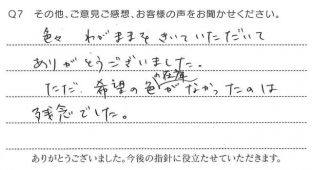 Q7 その他、ご意見ご感想、お客様の声をお聞かせください。
色々 わがままをきいていただいて
ありがとうございました。
ただ、希望の色の在庫がなかったのは
残念でした。
ありがとうございました。今後の指針に役立たせていただきます。